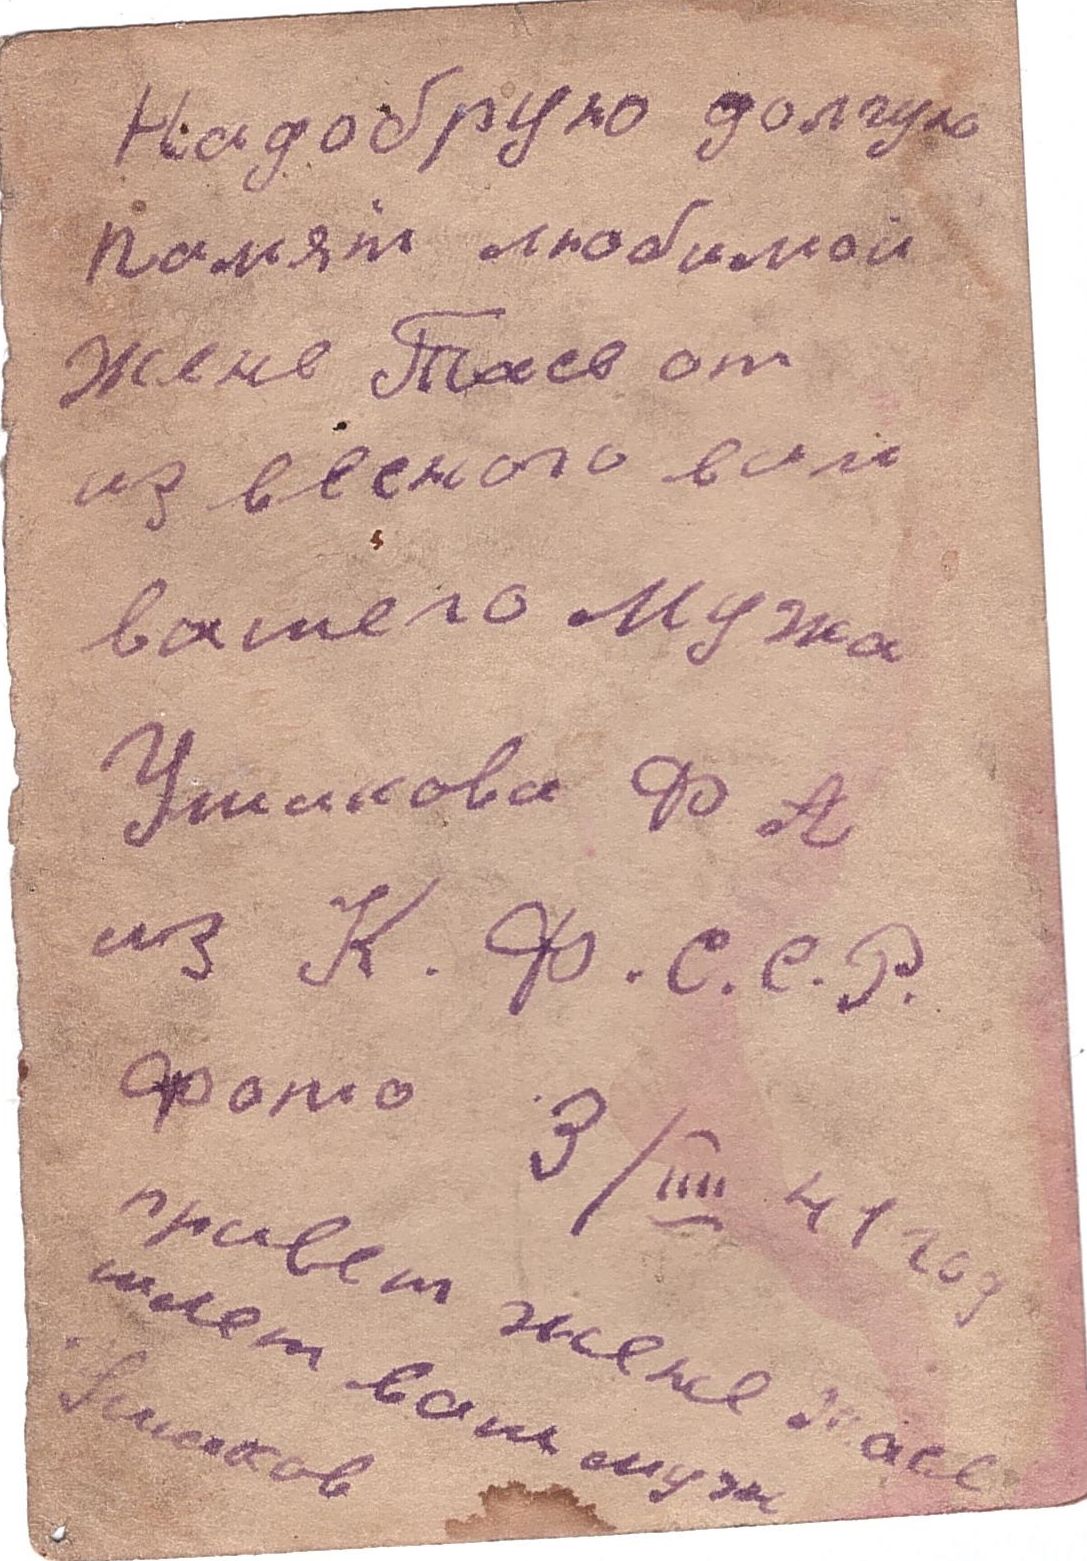 Надобрую долгую
памят любимой
жене Тасе от
из весного вам
вашего мужа
Ушакова Ф А
из К. Ф. С. С. Р.
фото 3/IIII 41 год
привет жене Тасе
шлет ваш муж
Ушаков